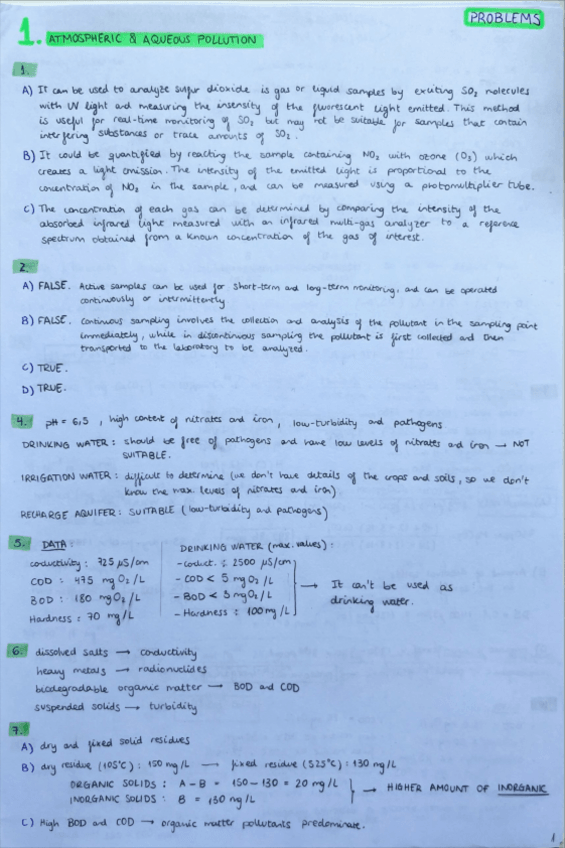 PROBLEMS
1. ATMOSPHERIC & AQUEOUS POLLUTION
1.
A) It can be used to analyze sulfur dioxide is gas or liquid samples by exciting SO₂ molecules
with UV light and measuring the insensity of the fluorescent light emitted. This method
is useful for real-time monitoring of SO₂ but may not be suitable for samples that contain
interfering substances or trace amounts of SO₂.
B) It could be quantified by reacting the sample containing NO₂ with ozone (O₃) which
creates a light emission. The intensity of the emitted light is proportional to the
concentration of NO₂ in the sample, and can be measured using a photomultiplier tube.
C) The concentration of each gas can be determined by comparing the intensity of the
absorbed infrared light measured with an infrared multi-gas analyzer to a reference
spectrum obtained from a known concentration of the gas of interest.
2.
A) FALSE. Active samples can be used for short-term and long-term monitoring, and can be operated
continuously or intermittently
B) FALSE. Continuous sampling involves the collection and analysis of the pollutant in the sampling point
immediately, while in discontinuous sampling the pollutant is first collected and then
transported to the laboratory to be analyzed.
C) TRUE.
D) TRUE.
4. pH = 6,5 , high content of nitrates and iron, low-turbidity and pathogens
DRINKING WATER : should be free of pathogens and have low levels of nitrates and iron → NOT
SUITABLE.
IRRIGATION WATER : difficult to determine (we don't have details of the crops and soils, so we don't
know the max. levels of nitrates and iron)
RECHARGE AQUIFER : SUITABLE (low-turbidity and pathogens)
5. DATA: DRINKING WATER (max. values) :
conductivity : 725 µS/cm - conduct. : 2500 µS/cm
COD : 475 mg O₂/L - COD < 5 mg O₂/L → It can't be used as
BOD : 180 mg O₂/L - BOD < 5 mg O₂/L drinking water.
Hardness : 70 mg/L - Hardness : 100 mg/L
6. dissolved salts → conductivity
heavy metals → radionuclides
biodegradable organic matter → BOD and COD
suspended solids → turbidity
7.
A) dry and fixed solid residues
B) dry residue (105°C) : 150 mg/L → fixed residue (525°C) : 130 mg/L
ORGANIC SOLIDS : A - B = 150 - 130 = 20 mg/L → HIGHER AMOUNT OF INORGANIC
INORGANIC SOLIDS : B = 130 mg/L
C) High BOD and COD → organic matter pollutants predominate.
1